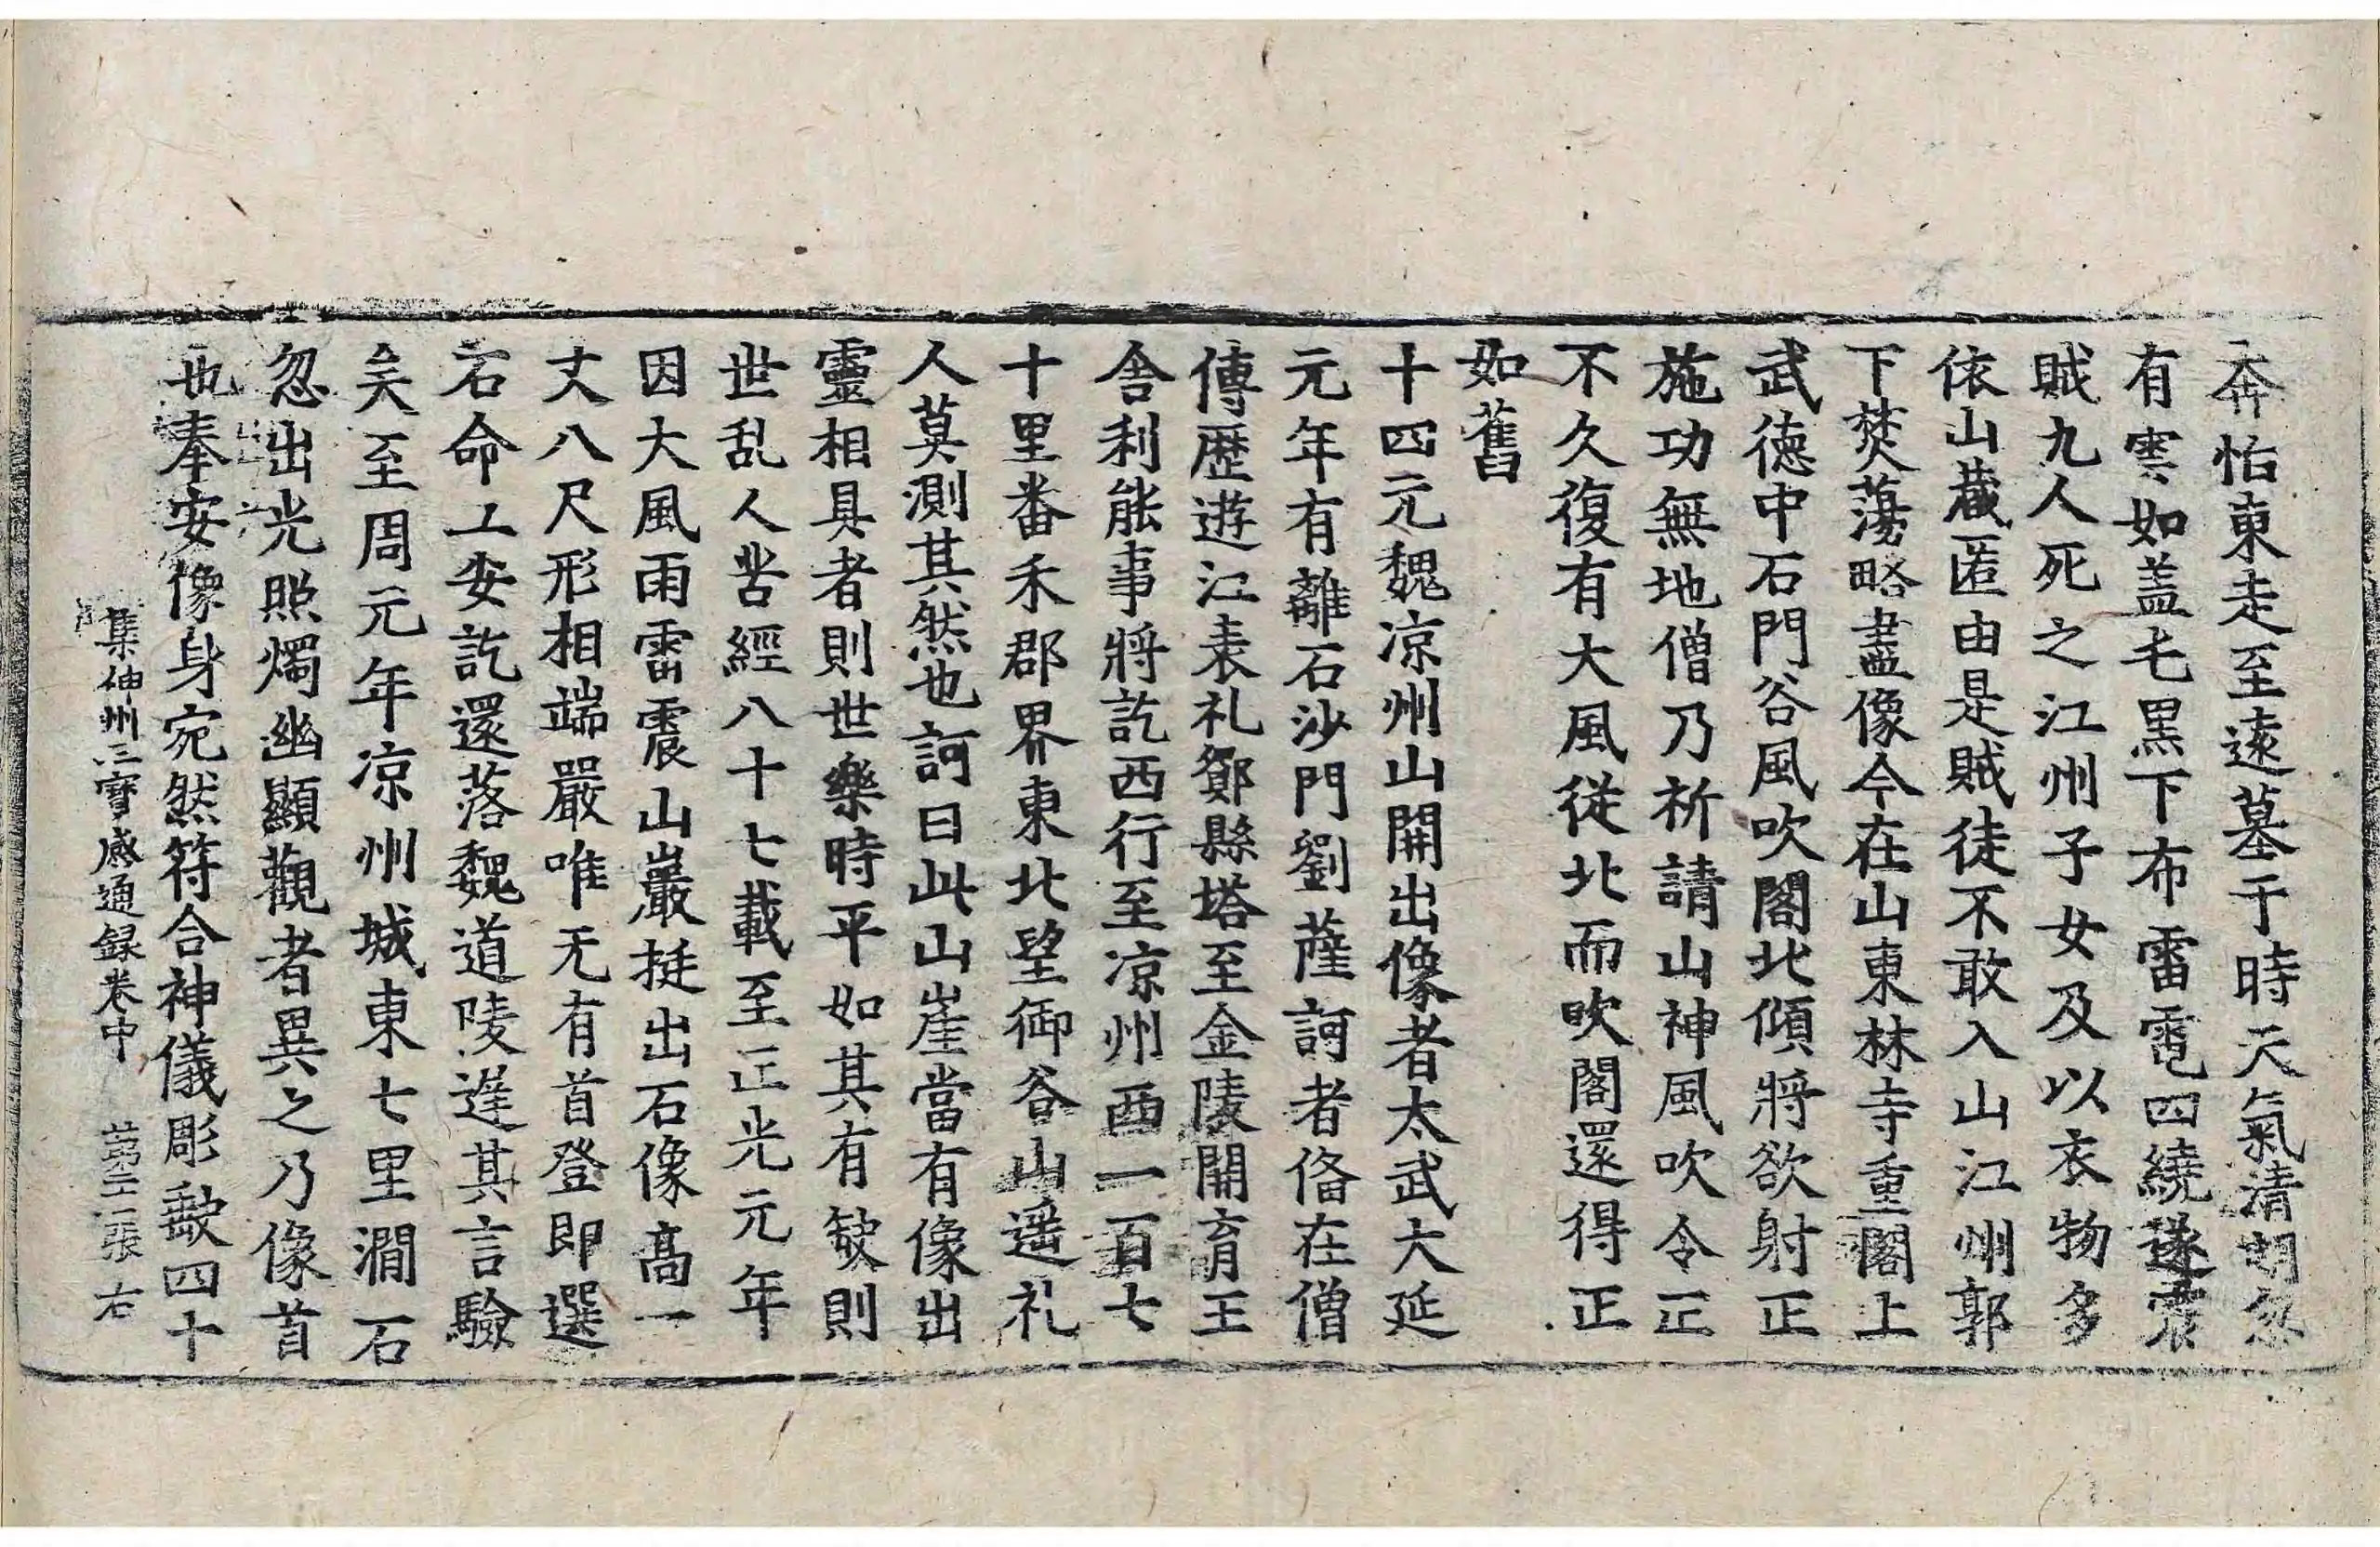 奔怕東走至遠墓于時天氣清明忽
有雲如盖毛黒下布雷電四繞遂震
賊九人死之江州子女及以衣物多
依山藏匿由是賊徒不敢入山江州郭
下焚蕩略盡像今在山東林寺重閣上
武德中石門谷風吹閣北傾將欲射正
施功無地僧乃祈請山神風吹令正
不久復有大風従北而吹閣還得正
如舊
十四元魏凉州山開出像者太武大延
元年有離石沙門劉薩訶者俻在僧
傳歷遊江表礼鄮縣塔至金陵開育王
舎利能事將訖西行至凉州西一百七
十里番禾郡界東北望御谷山遥礼
人莫測其然也訶曰此山崖當有像出
靈相具者則世樂時平如其有缺則
世乱人苦經八十七載至正光元年
因大風雨雷震山巖挺出石像高一
丈八尺形相端嚴唯无有首登即選
石命工安訖還落魏道陵遅其言驗
矣至周元年凉州城東七里澗石
忽出光照燭幽顯觀者異之乃像首
也奉安像身宛然符合神儀彫𧇊四十
集神州三寳感通録卷中 第二張 右